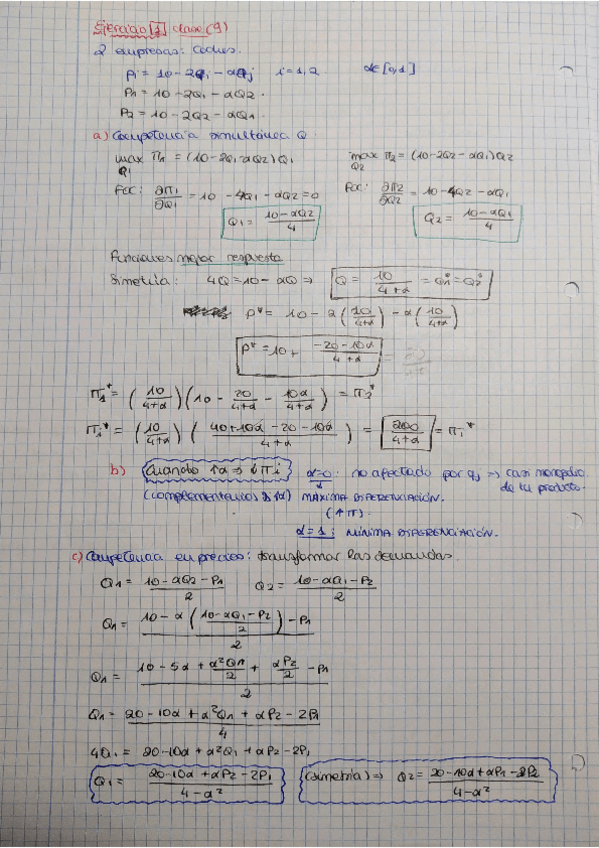 Ejercicio [1] clase (9)
2 empresas: coches.
Pi = 10 - 2Qi - αQj   i = 1, 2   α ∈ [0,1]
P1 = 10 - 2Q1 - αQ2.
P2 = 10 - 2Q2 - αQ1.
a) Competencia simultánea Q
max π1 = (10 - 2Q1 - αQ2) Q1   max π2 = (10 - 2Q2 - αQ1) Q2
Q1   Q2
FOC: ∂π1/∂Q1 = 10 - 4Q1 - αQ2 = 0   FOC: ∂π2/∂Q2 = 10 - 4Q2 - αQ1
Q1 = (10 - αQ2)/4   Q2 = (10 - αQ1)/4
Funciones mejor respuesta
Simetría: 4Q = 10 - αQ ⇒ Q = 10/(4+α) = Q1* = Q2*
P* = 10 - 2(10/(4+α)) - α(10/(4+α))
P* = 10 + (-20 - 10α)/(4+α)
π1* = (10/(4+α)) (10 - 20/(4+α) - 10α/(4+α)) = π2*
π1* = (10/(4+α)) ((40 + 10α - 20 - 10α)/(4+α)) = 200/(4+α) = πi*
b) Cuando ↑α ⇒ ↓πi   α=0: no afectado por qj ⇒ casi monopolio
de tu producto.
(complementarios ↑α) MÁXIMA DIFERENCIACIÓN.
(↑π).
α=1: MÍNIMA DIFERENCIACIÓN.
c) Competencia en precios: transformar las demandas.
Q1 = (10 - αQ2 - P1)/2   Q2 = (10 - αQ1 - P2)/2
Q1 = (10 - α((10 - αQ1 - P2)/2) - P1)/2
Q1 = (10 - 5α + α²Q1/2 + αP2/2 - P1)/2
Q1 = (20 - 10α + α²Q1 + αP2 - 2P1)/4
4Q1 = 20 - 10α + α²Q1 + αP2 - 2P1
Q1 = (20 - 10α + αP2 - 2P1)/(4 - α²)   (simetría) ⇒ Q2 = (20 - 10α + αP1 - 2P2)/(4 - α²)